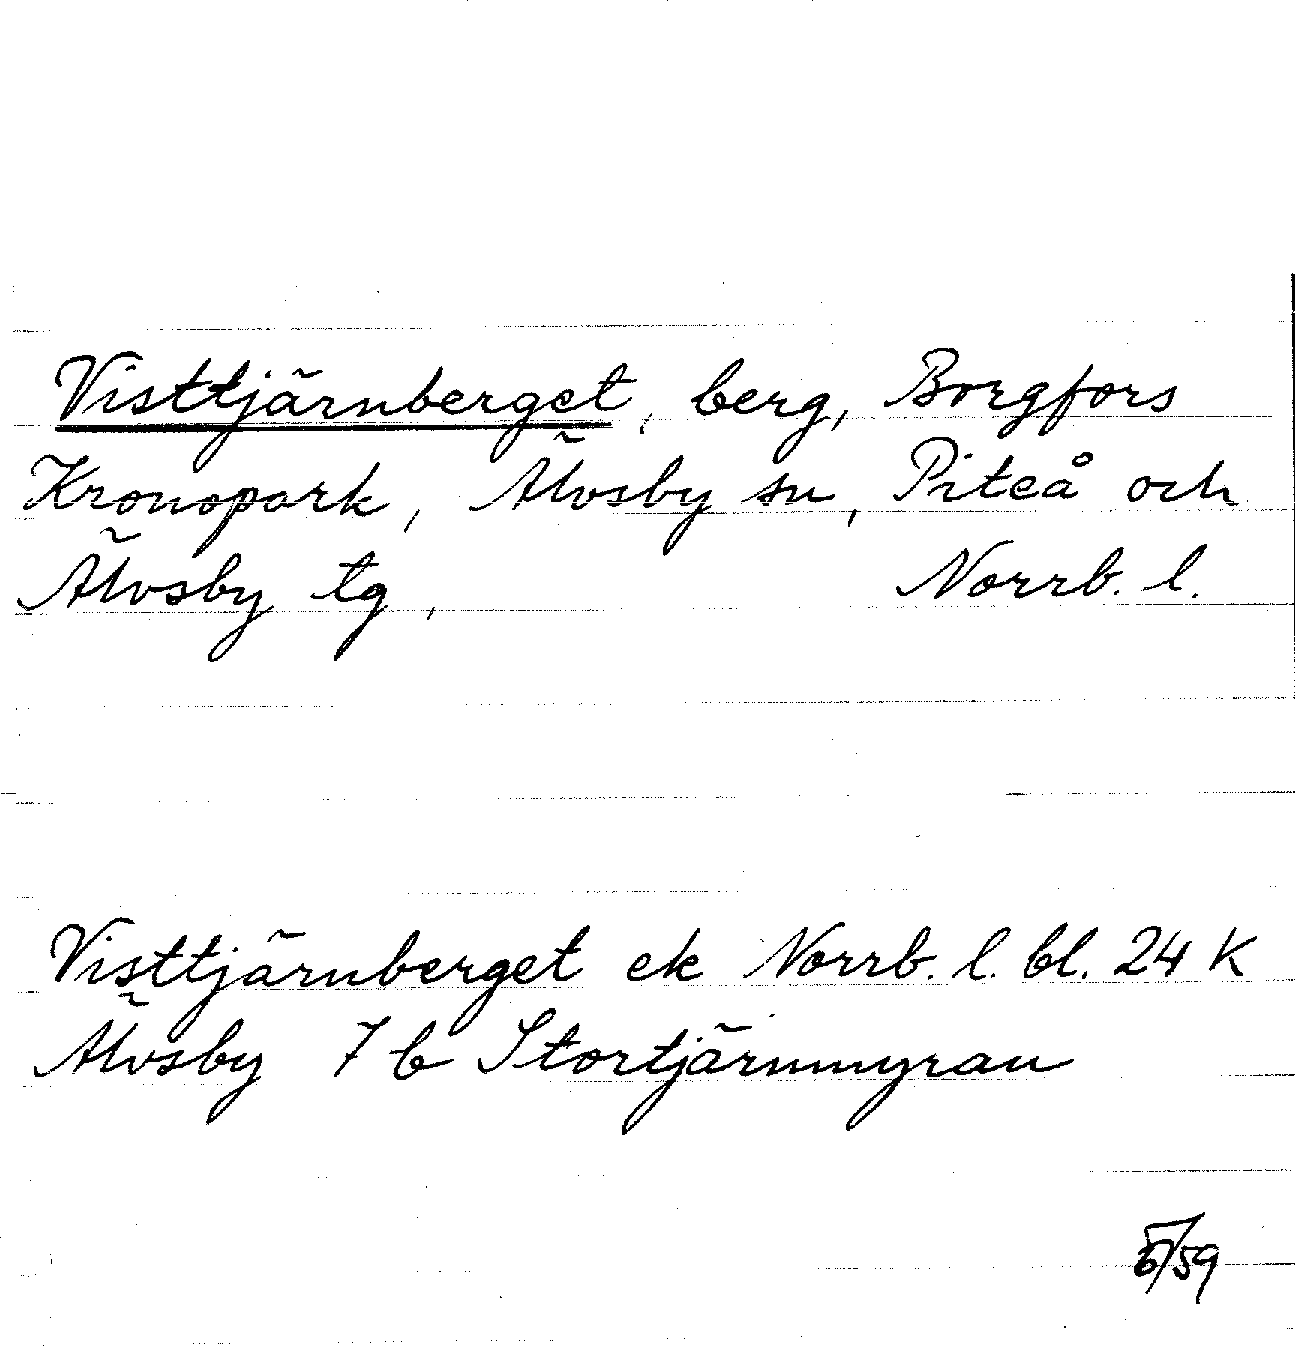 Visttjärnberget, berg, Borgfors
Kronopark, Älvsby sn, Piteå och
Älvsby tg, Norrb. l.
Visttjärnberget ek Norrb. l. bl. 24 K
Älvsby 7 b Stortjärnmyran